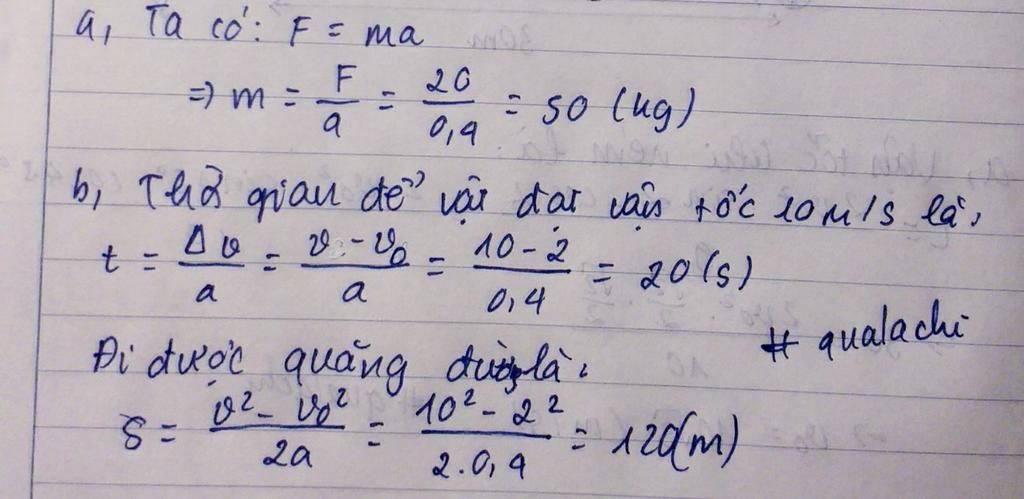 a, Ta có: F = ma
=> m = F/a = 20/0,4 = 50 (kg)
b, Thời gian để vật đạt vận tốc 10 m/s là,
t = Δv/a = v - v₀/a = 10 - 2/0,4 = 20 (s)
# qualachi
Đi được quãng đường là:
S = v² - v₀²/2a = 10² - 2²/2.0,4 = 120(m)